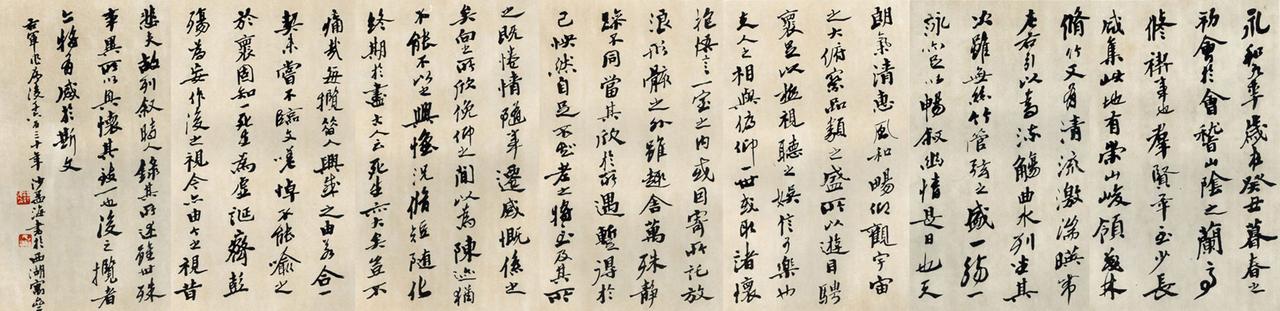 永和九年歲在癸丑暮春之
初會於會稽山陰之蘭亭
修禊事也群賢畢至少長
咸集此地有崇山峻領茂林
脩竹又有清流激湍暎帶
左右引以為流觴曲水列坐其
次雖無絲竹管弦之盛一觴一
詠亦足以暢敘幽情是日也天
朗氣清惠風和暢仰觀宇宙
之大俯察品類之盛所以遊目騁
懷足以極視聽之娛信可樂也
夫人之相與俯仰一世或取諸懷
抱悟言一室之內或因寄所託放
浪形骸之外雖趣舍萬殊靜
躁不同當其欣於所遇暫得於
己怏然自足不知老之將至及其所
之既惓情隨事遷感慨係之
矣向之所欣俛仰之間以為陳迹猶
不能不以之興懷況脩短隨化
終期於盡古人云死生亦大矣豈不
痛哉每攬昔人興感之由若合一
契未嘗不臨文嗟悼不能喻之
於懷固知一死生為虛誕齊彭
殤為妄作後之視今亦由今之視昔
悲夫故列敘時人錄其所述雖世殊
事異所以興懷其致一也後之攬者
亦將有感於斯文
右軍作序後千六百三十年沙孟海書於西湖寓舍